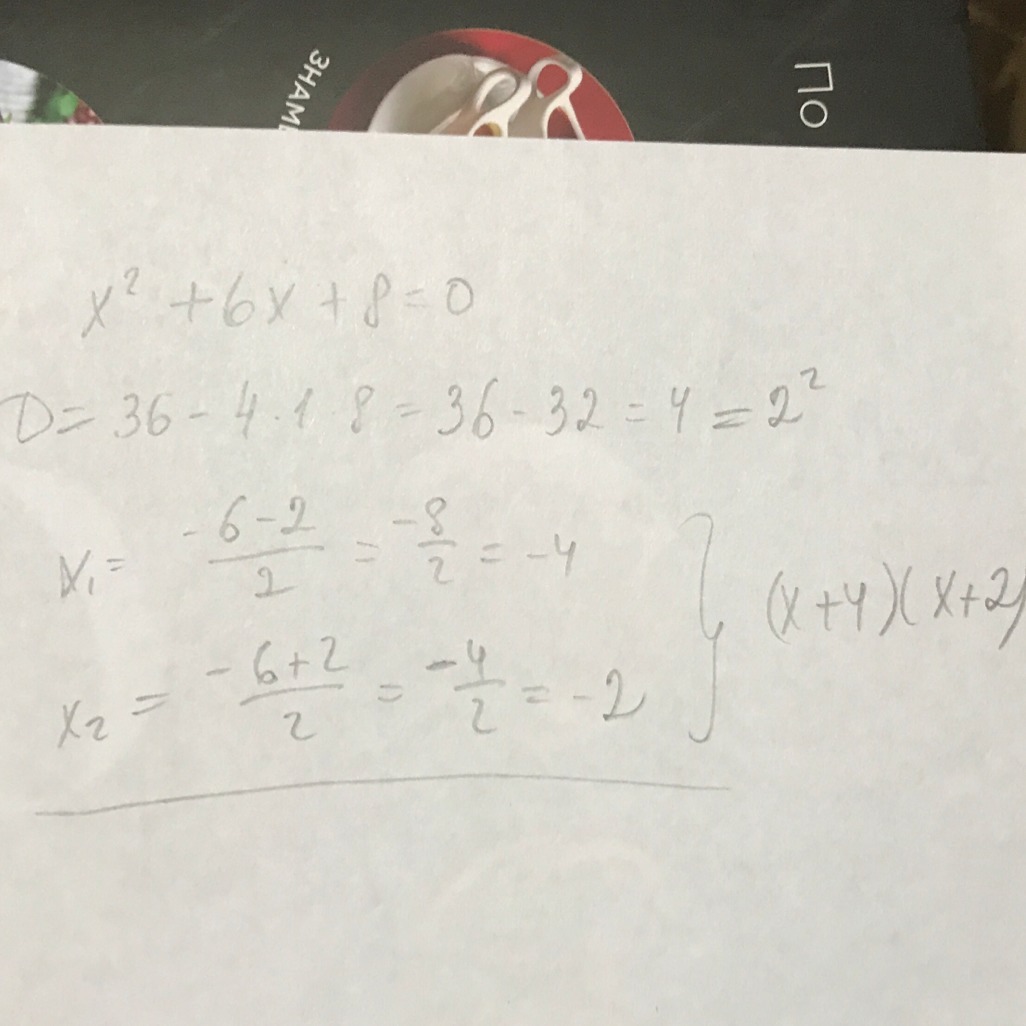 ЗНАМ
ПО
x² + 6x + 8 = 0
D = 36 - 4 · 1 · 8 = 36 - 32 = 4 = 2²
x₁ = -6-2/2 = -8/2 = -4
x₂ = -6+2/2 = -4/2 = -2 } (x+4)(x+2)